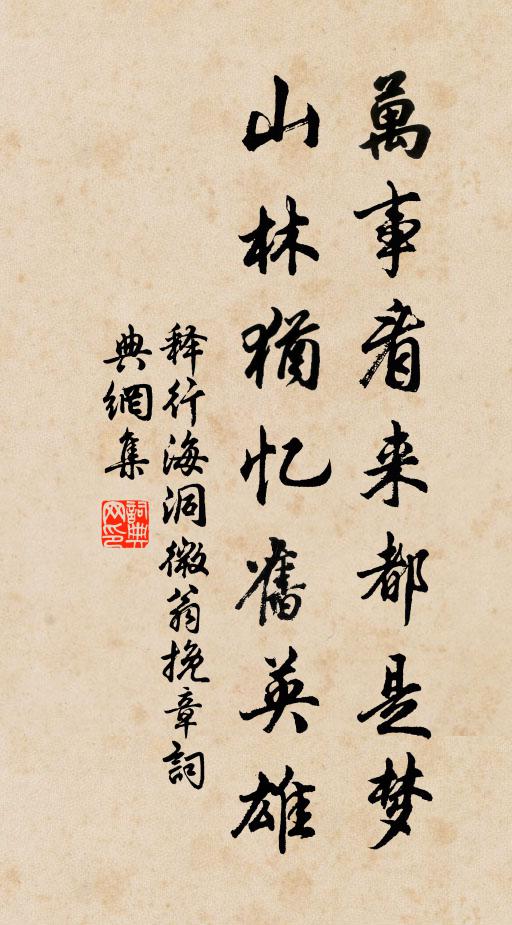 萬事看来都是梦
山林猶忆舊英雄
释行海洞微翁挽章詞
典網集
詞典网印